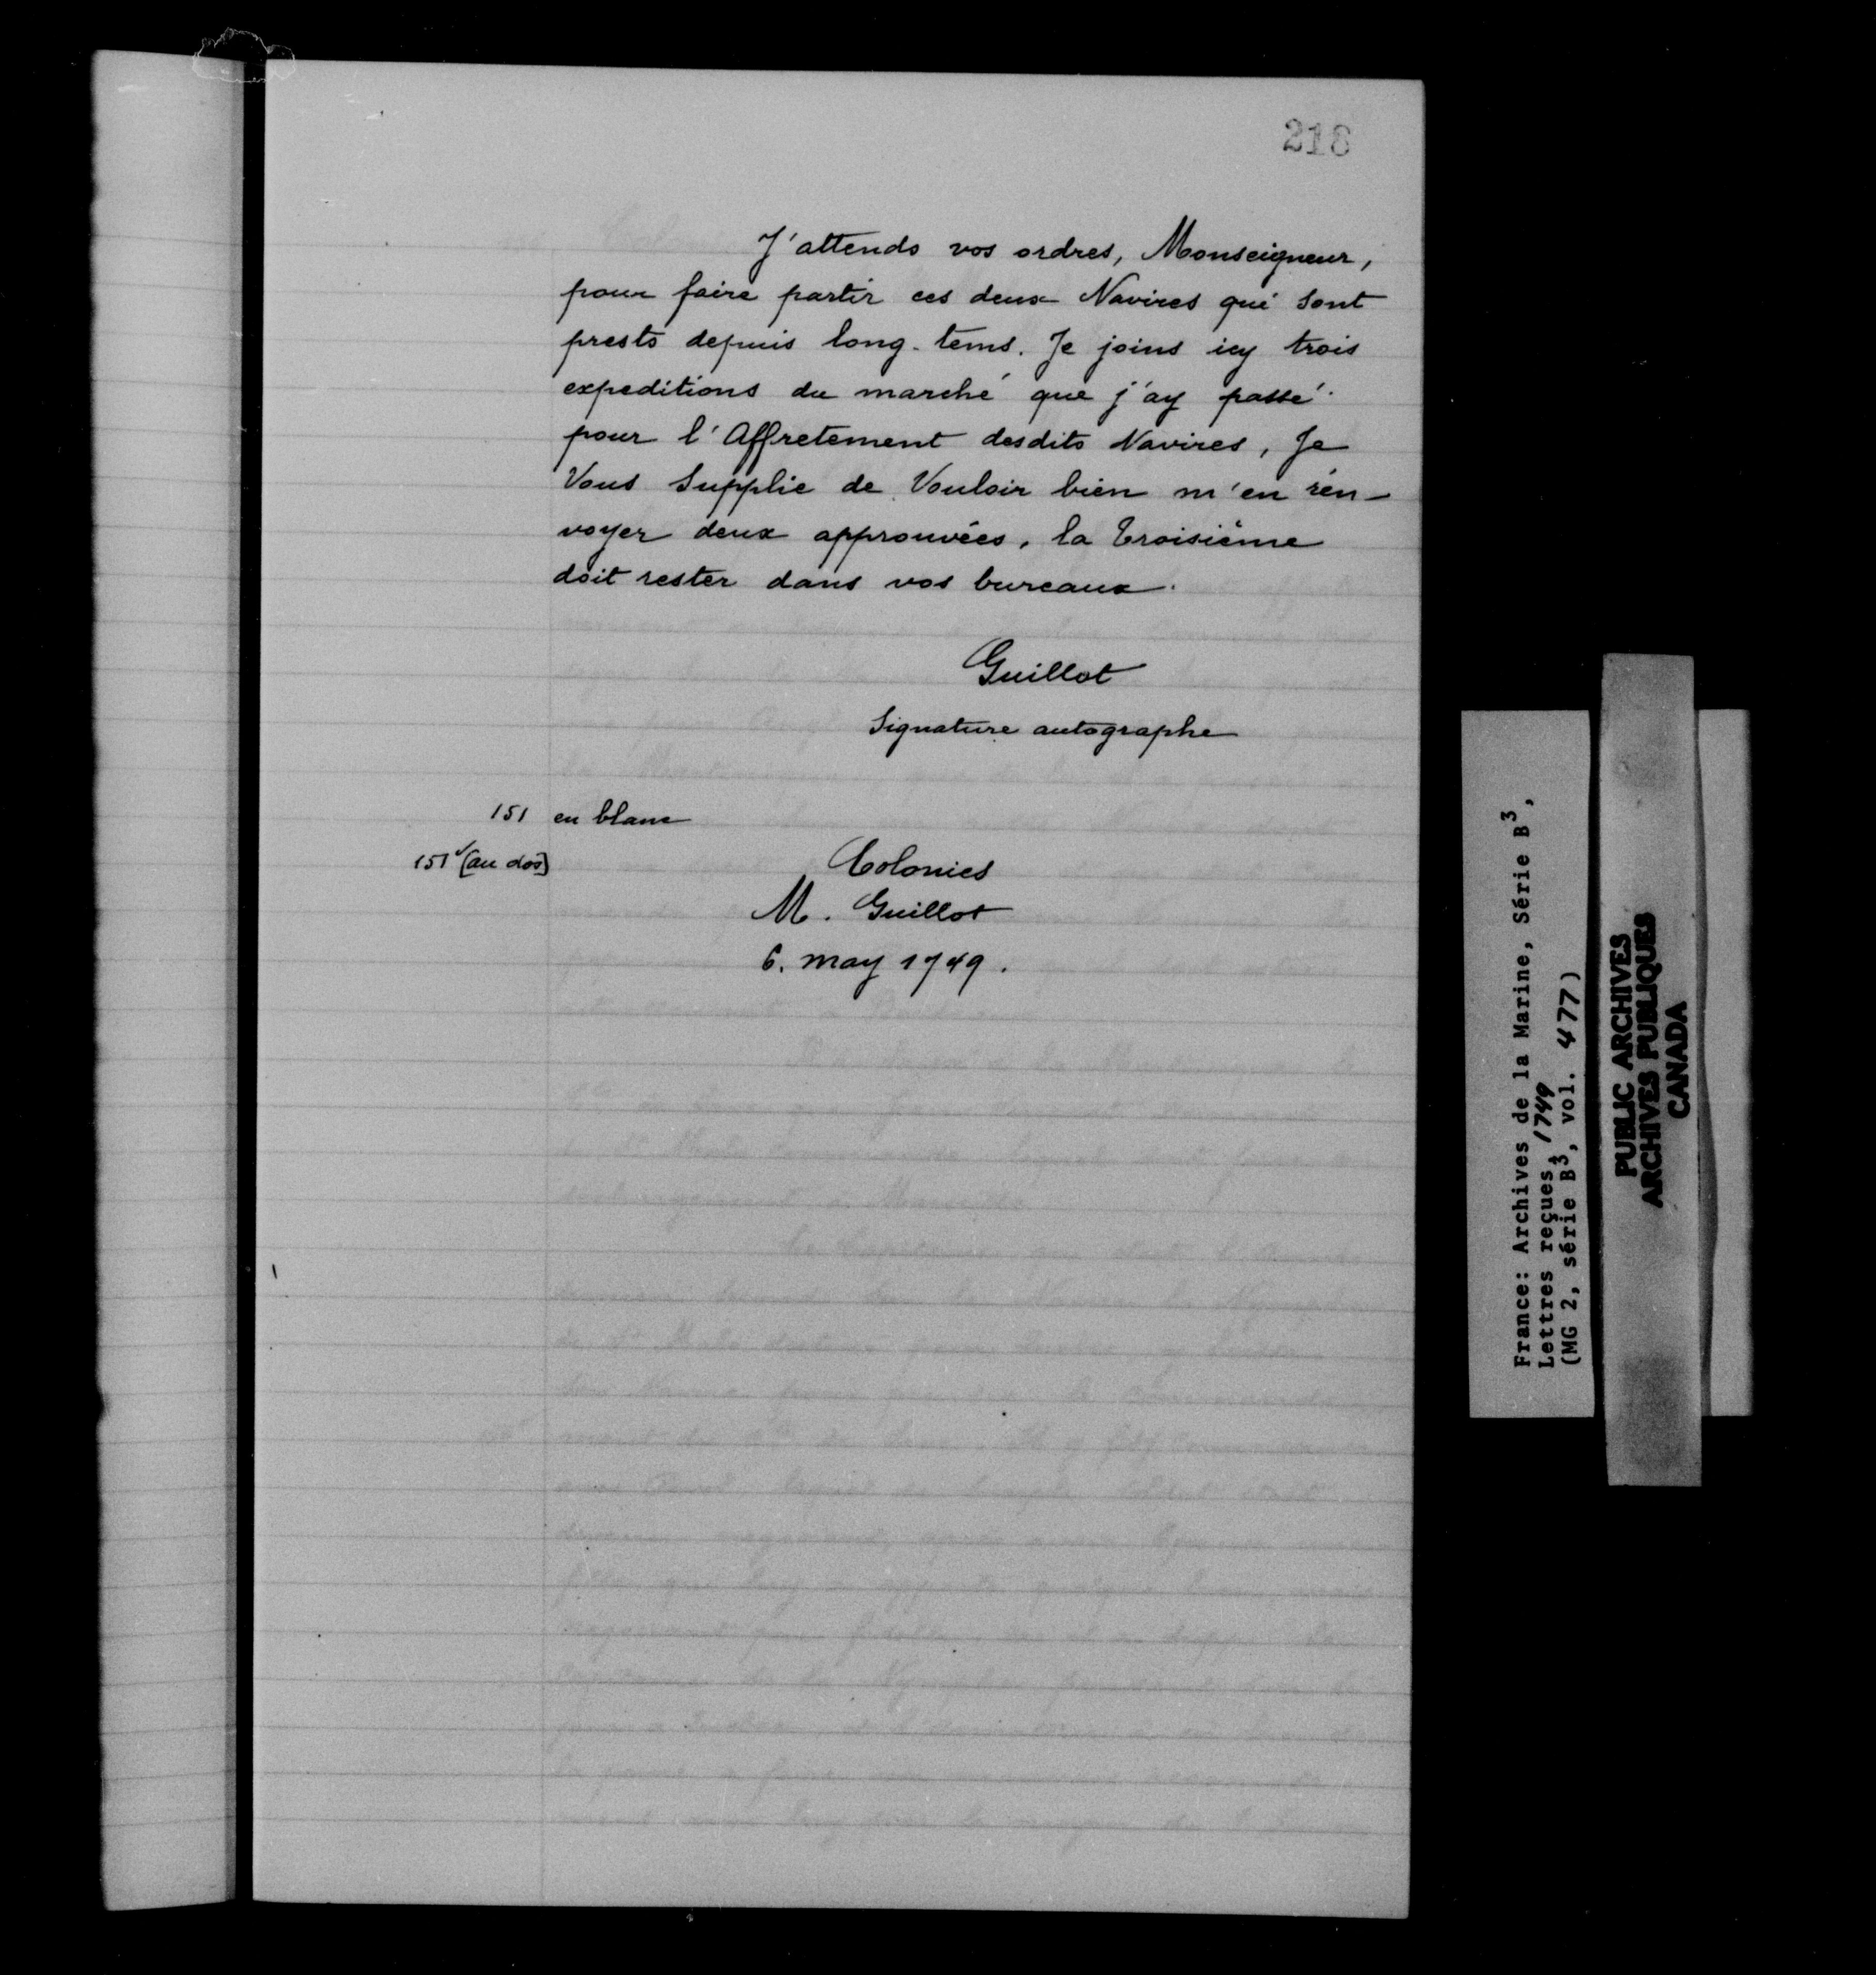 218
J'attends vos ordres, Monseigneur,
pour faire partir ces deux Navires qui sont
prests depuis long-tems. Je joins icy trois
expeditions du marché que j'ay passé
pour l'Affretement desdits Navires, Je
Vous Supplie de Vouloir bien m'en ren-
voyer deux approuvées, la troisième
doit rester dans vos bureaux.
Guillot
Signature autographe
151 en blanc
151v [au dos]
Colonies
M. Guillot
6. may 1749.
France: Archives de la Marine, Série B3,
Lettres reçues, 1749
(MG 2, série B3, vol. 477)
PUBLIC ARCHIVES
ARCHIVES PUBLIQUES
CANADA